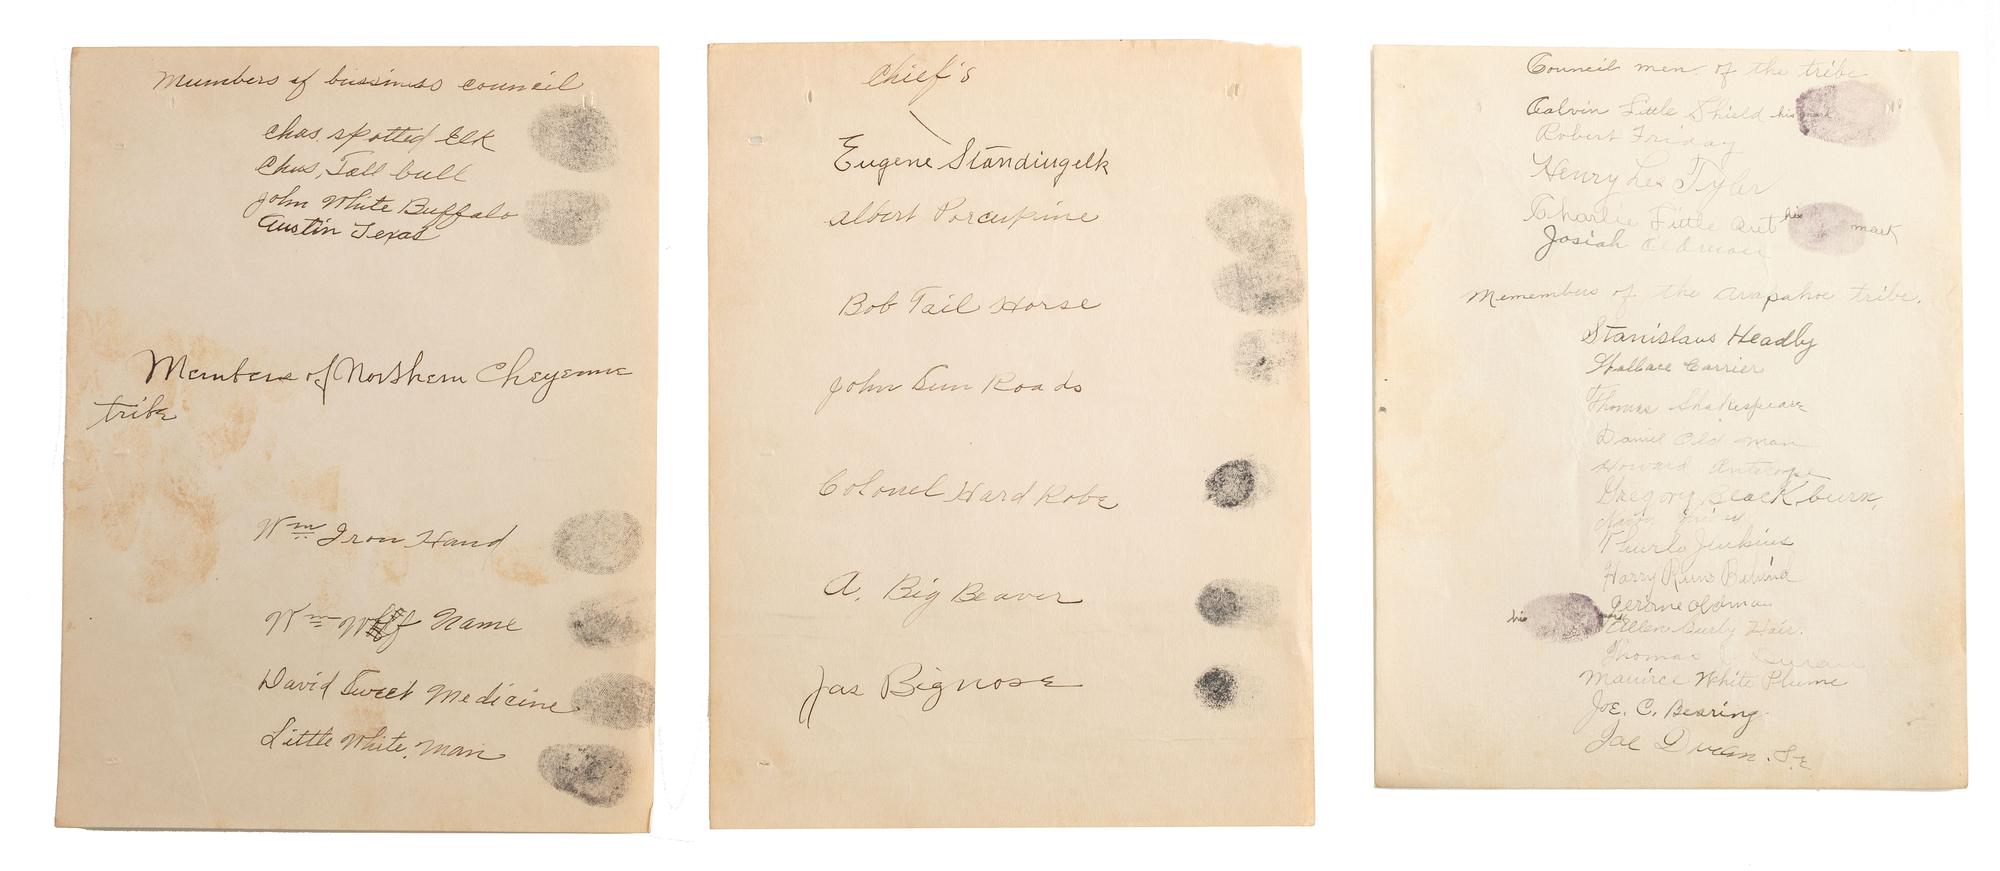 Mumbers of bussiness council
Chas. spotted Elk
Chas, Tall bull
John White Buffalo
Austin Texas
Members of Northern Cheyenne
tribe
Wm Iron Hand
Wm Wolf Name
David Sweet Medicine
Little White, Man
Chief's
Eugene Standingelk
Albert Porcupine
Bob Tail Horse
John Sun Roads
Colonel Hard Robe
A. Big Beaver
Jas Bignose
Council men of the tribe
Calvin Little Shield his mark
Robert Friday
Henry Lee Tyler
Charlie Little Ant his mark
Josiah Oldman
Memembers of the Arapahoe tribe.
Stanislaus Headly
Wallace Carrier
Thomas Shakespeare
Daniel Old man
Howard Antelope
Gregory Blackburn,
Jenkins
Harry Runs Behind
Jerome oldman
his mark Allen Curly Hair.
Thomas Duran
Maurice White Plume
Joe. C. Bearing
Joe Duran. Sr